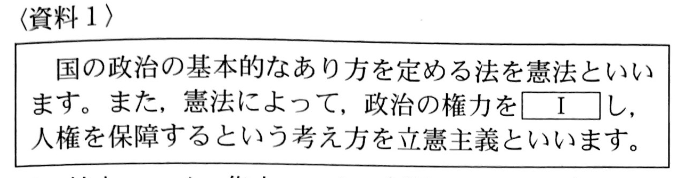 〈資料1〉
国の政治の基本的なあり方を定める法を憲法といい
ます。また，憲法によって，政治の権力を Ⅰ し，
人権を保障するという考え方を立憲主義といいます。